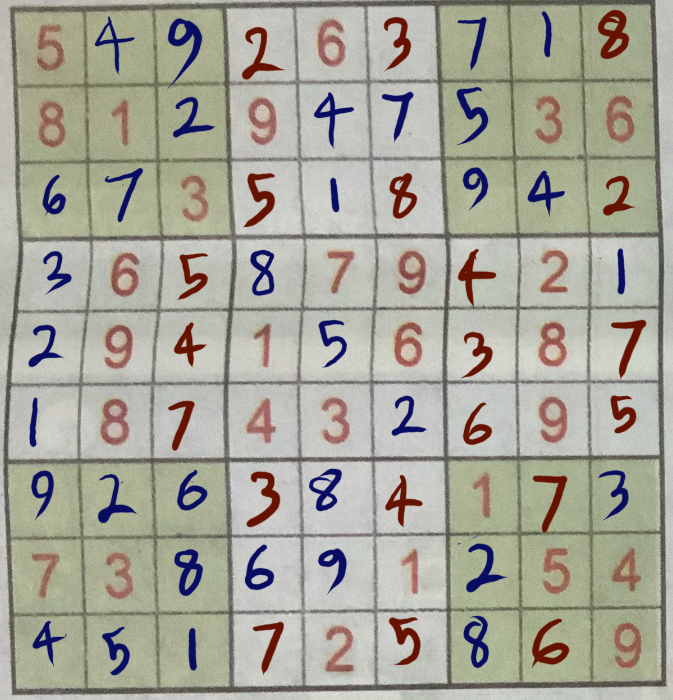 5 4 9 2 6 3 7 1 8
8 1 2 9 4 7 5 3 6
6 7 3 5 1 8 9 4 2
3 6 5 8 7 9 4 2 1
2 9 4 1 5 6 3 8 7
1 8 7 4 3 2 6 9 5
9 2 6 3 8 4 1 7 3
7 3 8 6 9 1 2 5 4
4 5 1 7 2 5 8 6 9